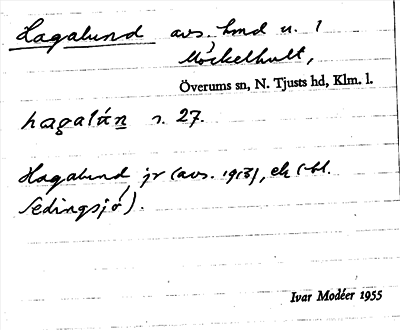 Hagalund avs. hmd u. 1
Mockelhult,
Överums sn, N. Tjusts hd, Klm. l.
hagalún s. 27.
Hagalund, jr (avs. 1913), ek (-bl.
Sedingsjö).
Ivar Modéer 1955